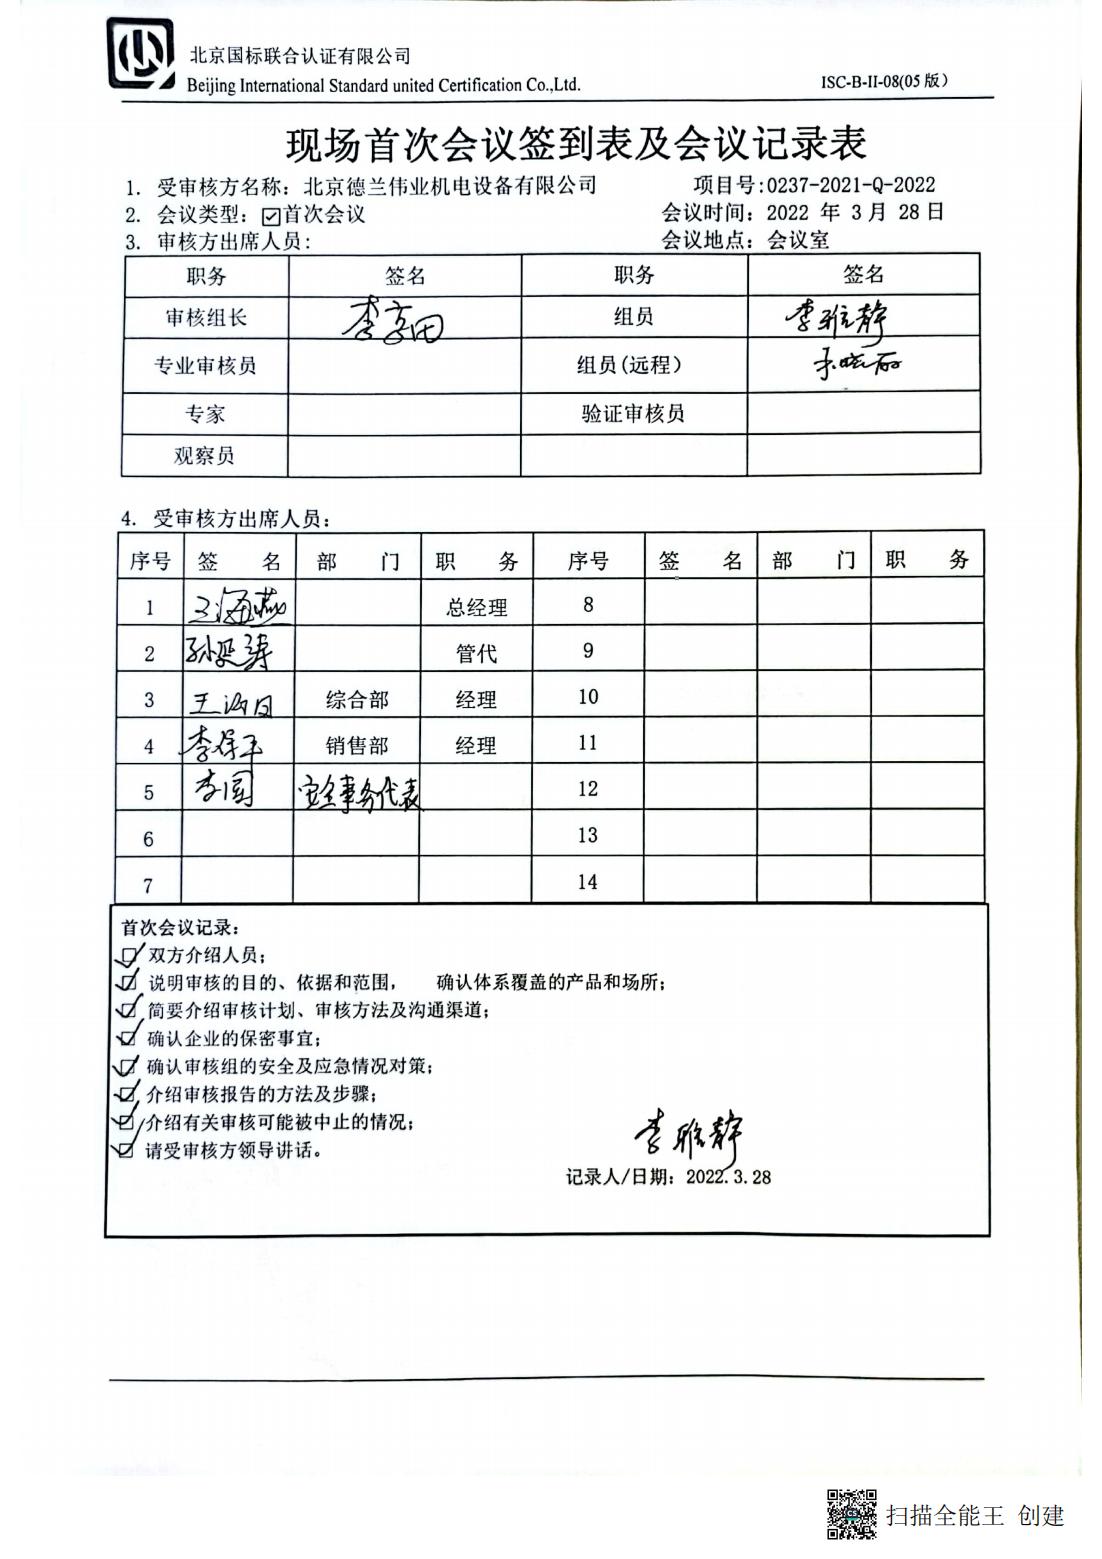 北京国标联合认证有限公司
Beijing International Standard united Certification Co.,Ltd.
ISC-B-II-08(05 版)
现场首次会议签到表及会议记录表
1. 受审核方名称：北京德兰伟业机电设备有限公司 项目号:0237-2021-Q-2022
2. 会议类型：☑首次会议 会议时间：2022 年 3 月 28 日
3. 审核方出席人员： 会议地点：会议室
职务 签名 职务 签名
审核组长 李京田 组员 李雅静
专业审核员 组员(远程)
专家 验证审核员
观察员
4. 受审核方出席人员：
序号 签 名 部 门 职 务 序号 签 名 部 门 职 务
1 王海燕 总经理 8
2 孙延涛 管代 9
3 综合部 经理 10
4 李保平 销售部 经理 11
5 安全事务代表 12
6 13
7 14
首次会议记录：
☑双方介绍人员；
☑说明审核的目的、依据和范围， 确认体系覆盖的产品和场所；
☑简要介绍审核计划、审核方法及沟通渠道；
☑确认企业的保密事宜；
☑确认审核组的安全及应急情况对策；
☑介绍审核报告的方法及步骤；
☑介绍有关审核可能被中止的情况；
☑请受审核方领导讲话。
李雅静
记录人/日期：2022.3.28
扫描全能王 创建